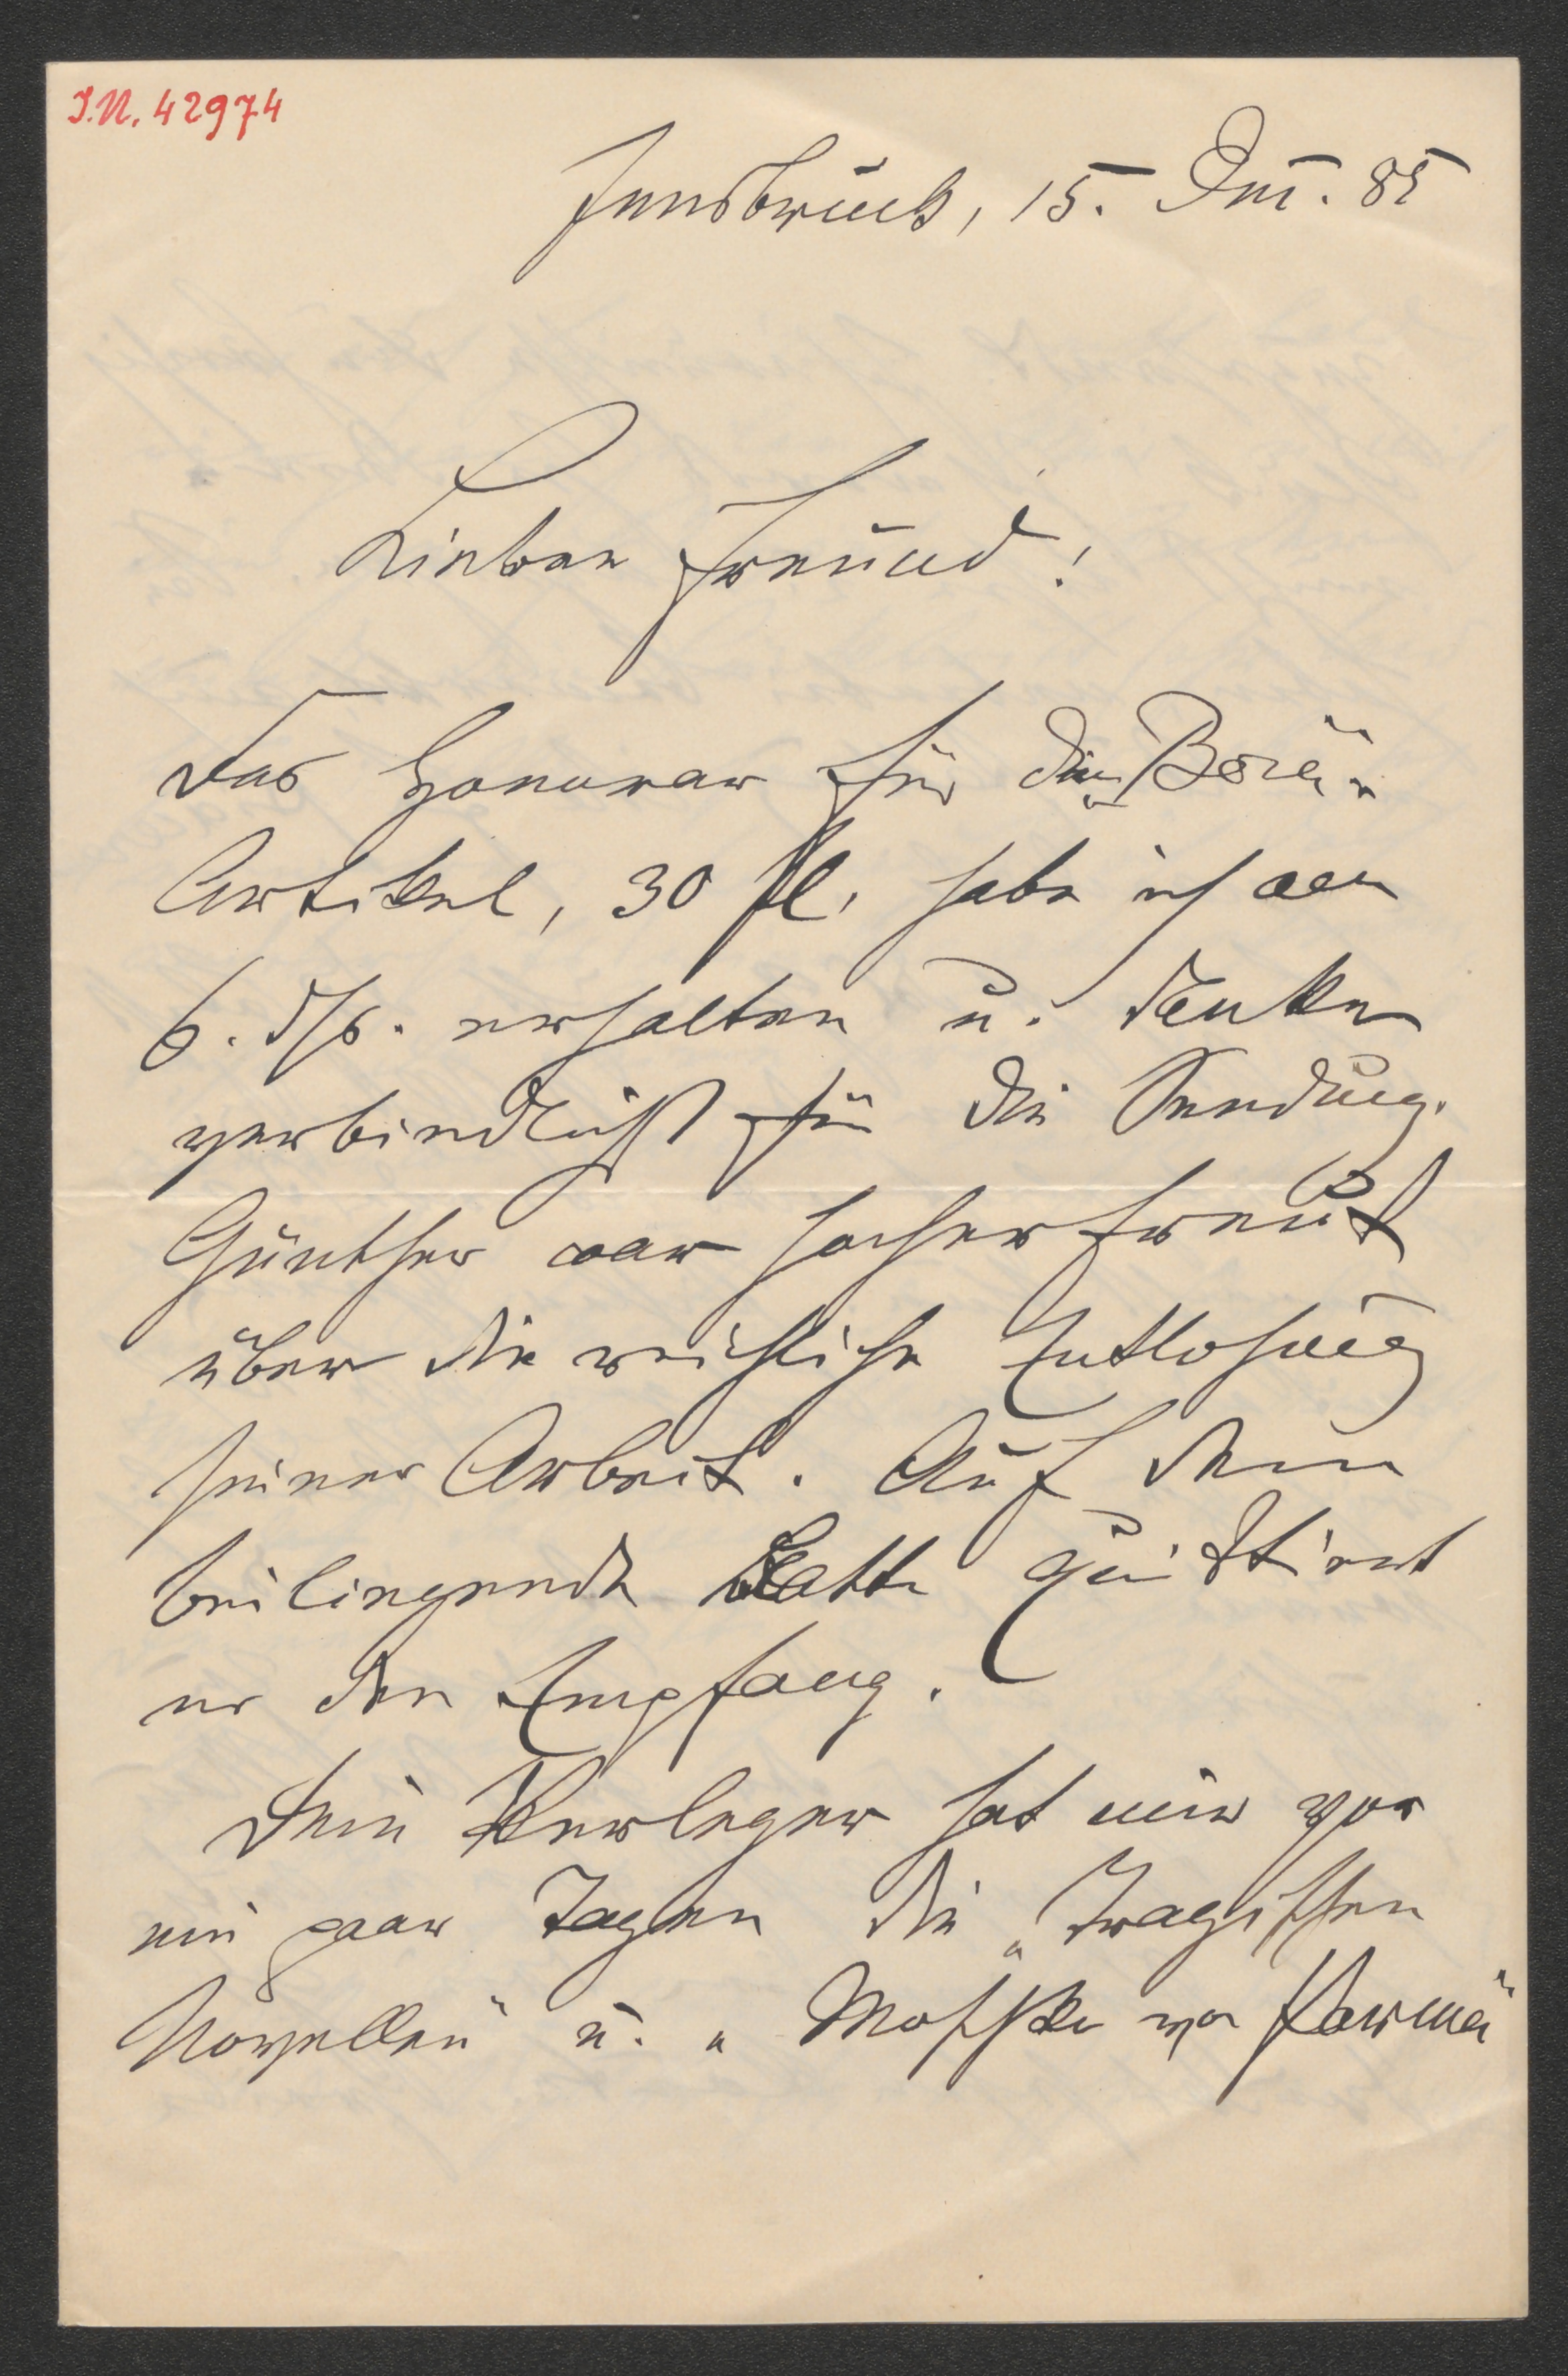 I.N. 42974
Innsbruck, 15. Dez. 85
Lieber Freund!
Das Honorar für den
Artikel, 30 fl. habe ich am
6. ds. erhalten u. danke
verbindlichst für die Sendung.
Günther war hocherfreut
über die reichliche Entlohnung
seiner Arbeit. Auf dem
beiliegende Karte quittirt
er den Empfang.
Dein Verleger hat mir vor
ein paar Tagen die „Tragischen
Novellen" u. „ von Parma"